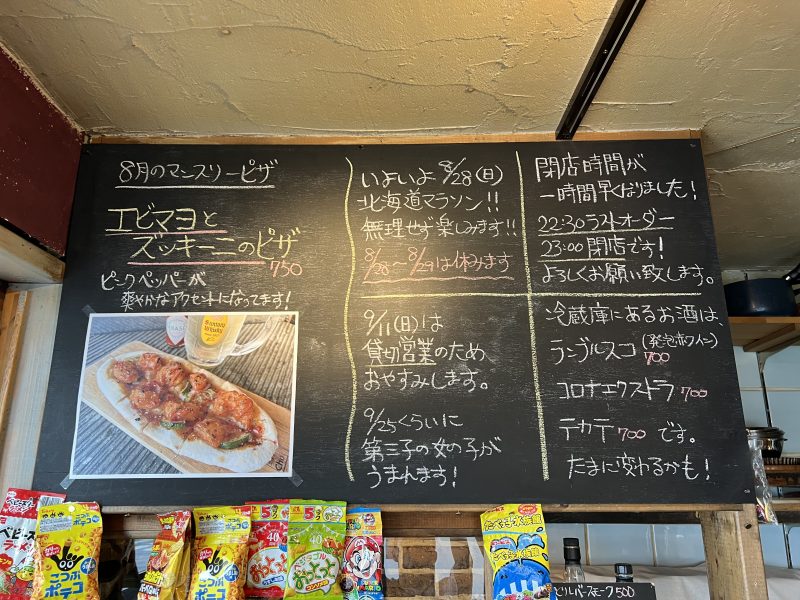 8月のマンスリーピザ
エビマヨと
ズッキーニのピザ
750
ピークペッパーが
爽やかなアクセントになってます!
いよいよ8/28(日)
北海道マラソン!!
無理せず楽しみます!!
8/28～8/29は休みます
9/11(日)は
貸切営業のため
おやすみします。
9/25くらいに
第三子の女の子が
うまれます!
閉店時間が
一時間早くなりました!
22:30ラストオーダー
23:00閉店です!
よろしくお願い致します。
冷蔵庫にあるお酒は、
ランブルスコ(発泡赤ワイン)
700
コロナエクストラ 700
テカテ 700 です。
たまに変わるかも!
こつぶ
ポテコ
おっとっと
おっとっと
500